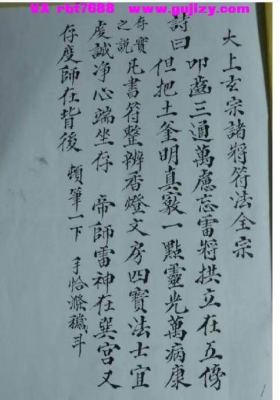 VX rbf7688 www.gujizy.com
太上玄宗諸將符法全宗
詩曰 叩齒三通萬慮忘雷將拱立在五傍
但把土釜明真竅一點靈光萬病康
存實之說 凡書符整辦香燈文房四寶法士宜
虔誠净心端坐存 帝師雷神在巽宮又
存度師在背後 頓筆一下 手恰滌穢斗
1